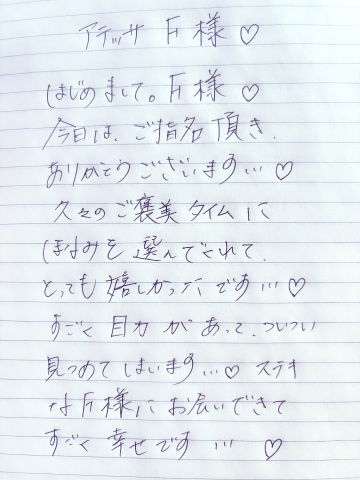 アテッサ F様♡
はじめまして。F様♡
今日は、ご指名頂き、
ありがとうございます…♡
久々のご褒美タイムに
ほなみを選んでくれて、
とっても嬉しかったです…♡
すごく目力があって、ついつい
見つめてしまいます…♡ステキ
なF様にお会いできて
すごく幸せです…♡